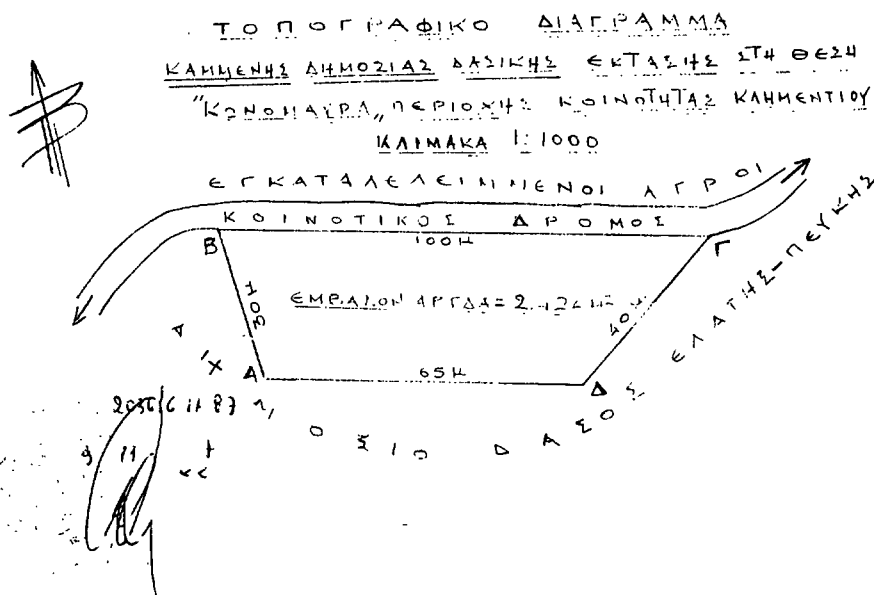 ΤΟΠΟΓΡΑΦΙΚΟ ΔΙΑΓΡΑΜΜΑ
ΚΑΜΜΕΝΗΣ ΔΗΜΟΣΙΑΣ ΔΑΣΙΚΗΣ ΕΚΤΑΣΗΣ ΣΤΗ ΘΕΣΗ
"ΚΩΝΟΜΑΥΡΑ" ΠΕΡΙΟΧΗΣ ΚΟΙΝΟΤΗΤΑΣ ΚΛΗΜΕΝΤΙΟΥ
ΚΛΙΜΑΚΑ 1:1000
ΕΓΚΑΤΑΛΕΛΕΙΜΜΕΝΟΙ ΑΓΡΟΙ
ΚΟΙΝΟΤΙΚΟΣ ΔΡΟΜΟΣ
Β
100Μ
Γ
30Μ
ΕΜΒΑΔΟΝ ΑΒΓΔΑ=
40Μ
Α
65Μ
Δ
ΔΑΣΟΣ ΕΛΑΤΗΣ-ΠΕΥΚΗΣ